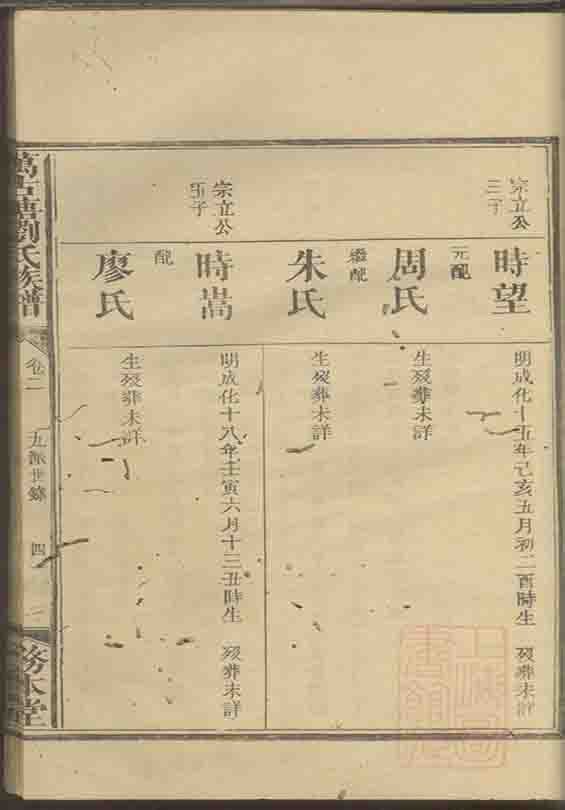 宗立公
三子
時望
明成化十五年己亥五月初二酉時生 歿葬未詳
元配
周氏
生歿葬未詳
繼配
朱氏
生歿葬未詳
宗立公
五子
時嵩
明成化十八年壬寅六月十三丑時生 歿葬未詳
配
廖氏
生歿葬未詳
劉氏族譜
卷二
九派世錄
四
務本堂